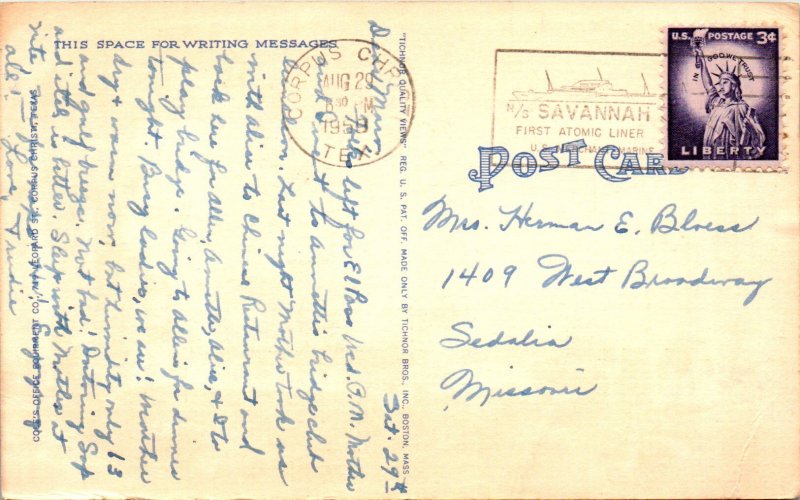 THIS SPACE FOR WRITING MESSAGES
Sat. 29th
Dear Mom,
left for El Paso Wed. P.M. Mother
and I went to Annette's bridge club
luncheon. Last night Mother took us
with Alice to Chinese Restaurant and
back here for Allen, Annette, Alice, & I to
play bridge. Going to Allen's for dinner
tonight. Busy ladies, we are! Mother
dry & warm now, but humidity only 63
and gulf breeze. Not bad! Doctoring
and it is better. Sleep with Mother at
nite,
all!
Love, Trudie
COX'S OFFICE EQUIPMENT CO., LEOPARD ST. CORPUS CHRISTI, TEXAS
"TICHNOR QUALITY VIEWS" REG. U. S. PAT. OFF. MADE ONLY BY TICHNOR BROS., INC., BOSTON, MASS.
CORPUS CHRISTI
AUG 29
6 30 PM
1959
TEX.
N/S SAVANNAH
FIRST ATOMIC LINER
U.S. MERCHANT MARINE
U.S. POSTAGE 3¢
IN GOD WE TRUST
LIBERTY
POST CARD
Mrs. Herman E. Bloess
1409 West Broadway
Sedalia
Missouri